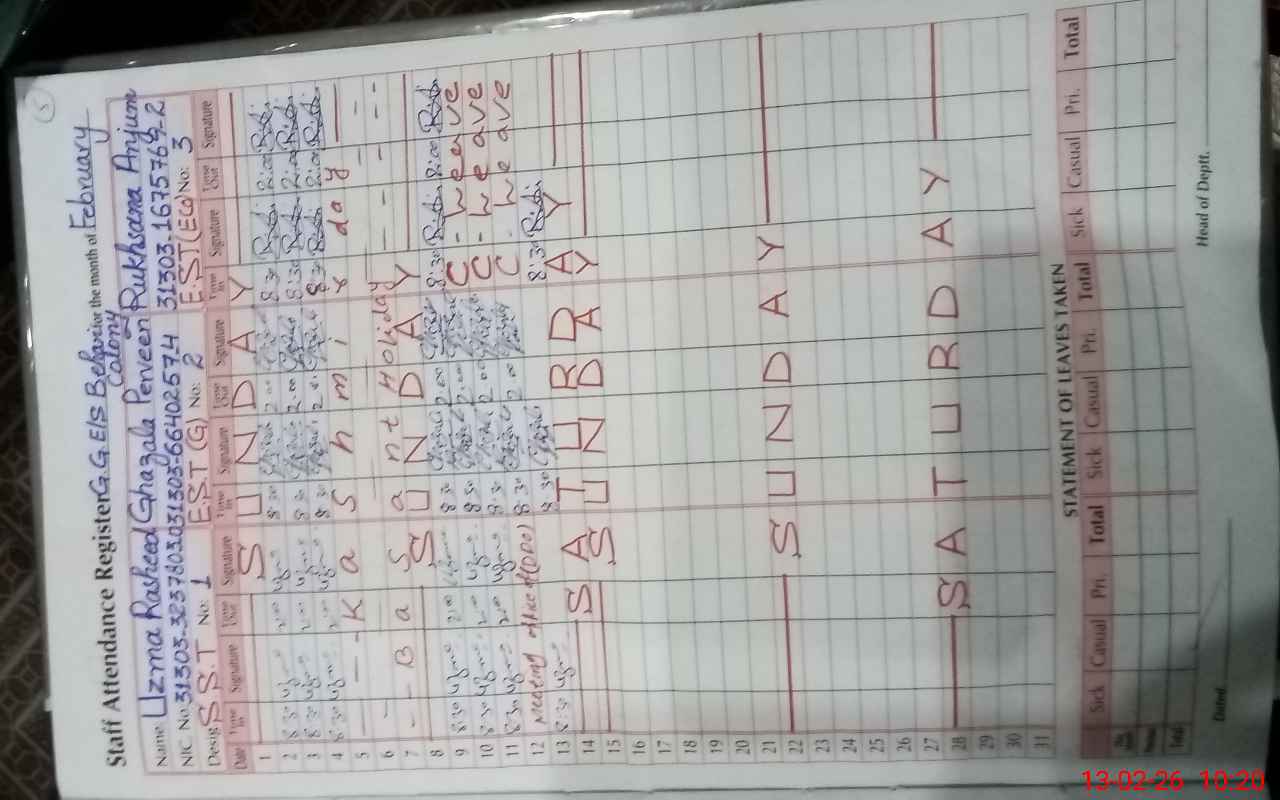 5
Staff Attendance Register G.G.E/S Behari Colony for the month of February
Name: Uzma Rasheed Ghazala Perveen Rukhsana Anjum
NIC No. 31303-3237803-0 31303-6640257-4 31303-1675764-2
Desig: S.S.T No: 1 E.S.T (G) No: 2 E.S.T (EG) No: 3
Date Time In Signature Time Out Signature Time In Signature Time Out Signature Time In Signature Time Out Signature
1 SUNDAY
2 8:30 2:00 8:30 2:00 8:30 2:00
3 8:30 2:00 8:30 2:00 8:30 2:00
4 8:30 2:00 8:30 2:00 8:30 2:00
5 Kashmir day
6 Basant Holiday
7
8 SUNDAY
9 8:30 2:00 8:30 2:00 8:30 2:00
10 8:30 2:00 8:30 2:00 C - Leave
11 8:30 2:00 8:30 2:00 C - Leave
12 Meeting office A(DDO) 8:30 2:00 C - Leave
13 8:30 8:30 8:30
14 SATURDAY
15 SUNDAY
16
17
18
19
20
21
22 SUNDAY
23
24
25
26
27
28 SATURDAY
29
30
31
STATEMENT OF LEAVES TAKEN
Sick Casual Pri. Total Sick Casual Pri. Total Sick Casual Pri. Total
Total
Dated
Head of Deptt.
13-02-26 10:20